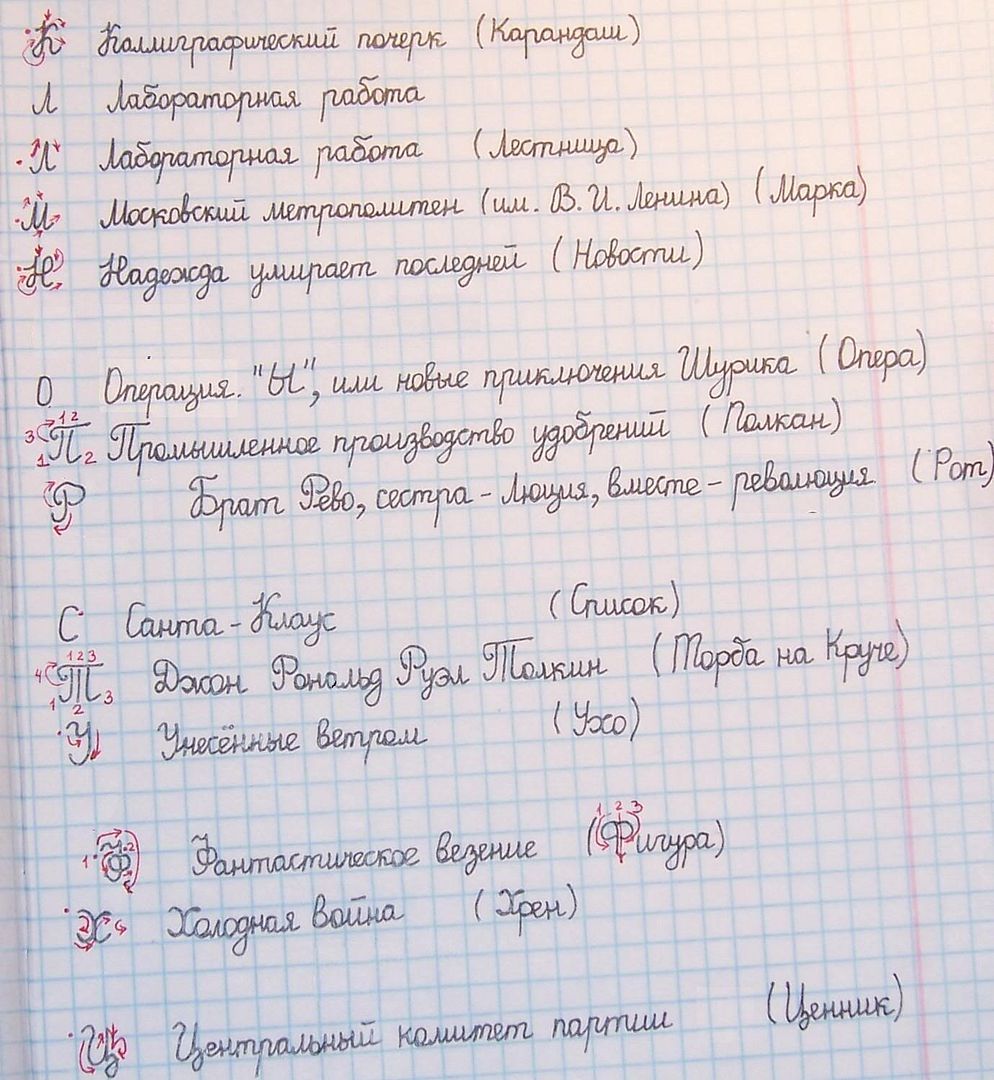 К Каллиграфический почерк (Карандаш)
Л Лабораторная работа
Л Лабораторная работа (Лестница)
М Московский метрополитен (им. В. И. Ленина) (Марка)
Н Надежда умирает последней (Новости)
О Операция. "Ы", или новые приключения Шурика (Опера)
1 2
3 П Промышленное производство удобрений (Полкан)
1 2
Р Брат Рево, сестра - Люция, вместе - революция. (Рот)
С Санта - Клаус (Список)
1 2 3
4 Т Джон Рональд Руэл Толкин (Торба на Круче)
1 2 3
У Унесённые ветром (Ухо)
1 2 3
1 2 Ф Фантастическое везение (Фигура)
Х Холодная война (Хрен)
Ц Центральный комитет партии (Ценник)